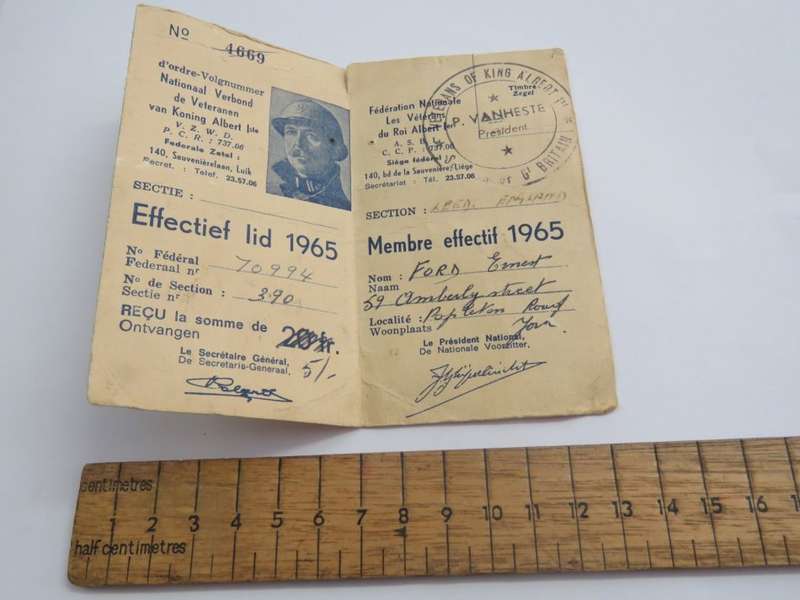 Nº 4669
d'ordre-Volgnummer
Nationaal Verbond
de Veteranen
van Koning Albert Iste
V. Z. W. D.
P. C. R. : 737.06
Federale Zetel :
140, Souvenirelaan, Luik
Secret. : Telef. 23.57.06
SECTIE :
Effectief lid 1965
Nº Fédéral : 70994
Federaal nr
Nº de Section : 390
Sectie nr
REÇU la somme de fr.
Ontvangen
5/-
Le Secrétaire Général,
De Secretaris-Generaal,
Timbre-
Zegel
Fédération Nationale
Les Vétérans
du Roi Albert Ier
A. S. B. L.
C. C. P. : 737.06
Siège fédéral :
140, bd de la Sauvenière, Liége
Secrétariat : Tél. 23.57.06
VETERANS OF KING ALBERT Ist
P. VANHESTE
President
OF Gt BRITAIN
SECTION : ENGLAND
Membre effectif 1965
Nom : FORD Ernest
Naam
59 Amberly street
Localité : Road
Woonplaats
Le Président National,
De Nationale Voorzitter,
centimetres
1 2 3 4 5 6 7 8 9 10 11 12 13 14 15 16
half centimetres